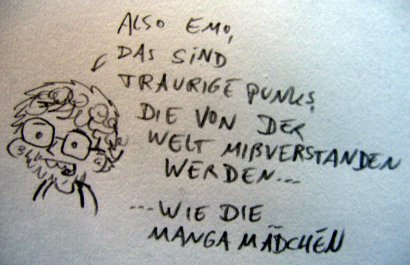 ALSO EMO,
DAS SIND
TRAURIGE PUNKS,
DIE VON DER
WELT MIßVERSTANDEN
WERDEN...
...WIE DIE
MANGA MÄDCHEN